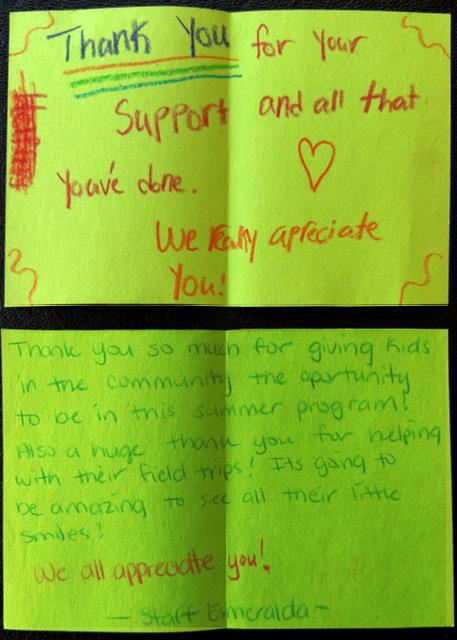 Thank You for your
Support and all that
You've done.
We Really apreciate
You!
Thank you so much for giving kids
in the community the oportunity
to be in this summer program!
Also a huge thank you for helping
with their field trips! Its going to
be amazing to see all their little
smiles!
We all appreciate you!
— Staff Esmeralda —